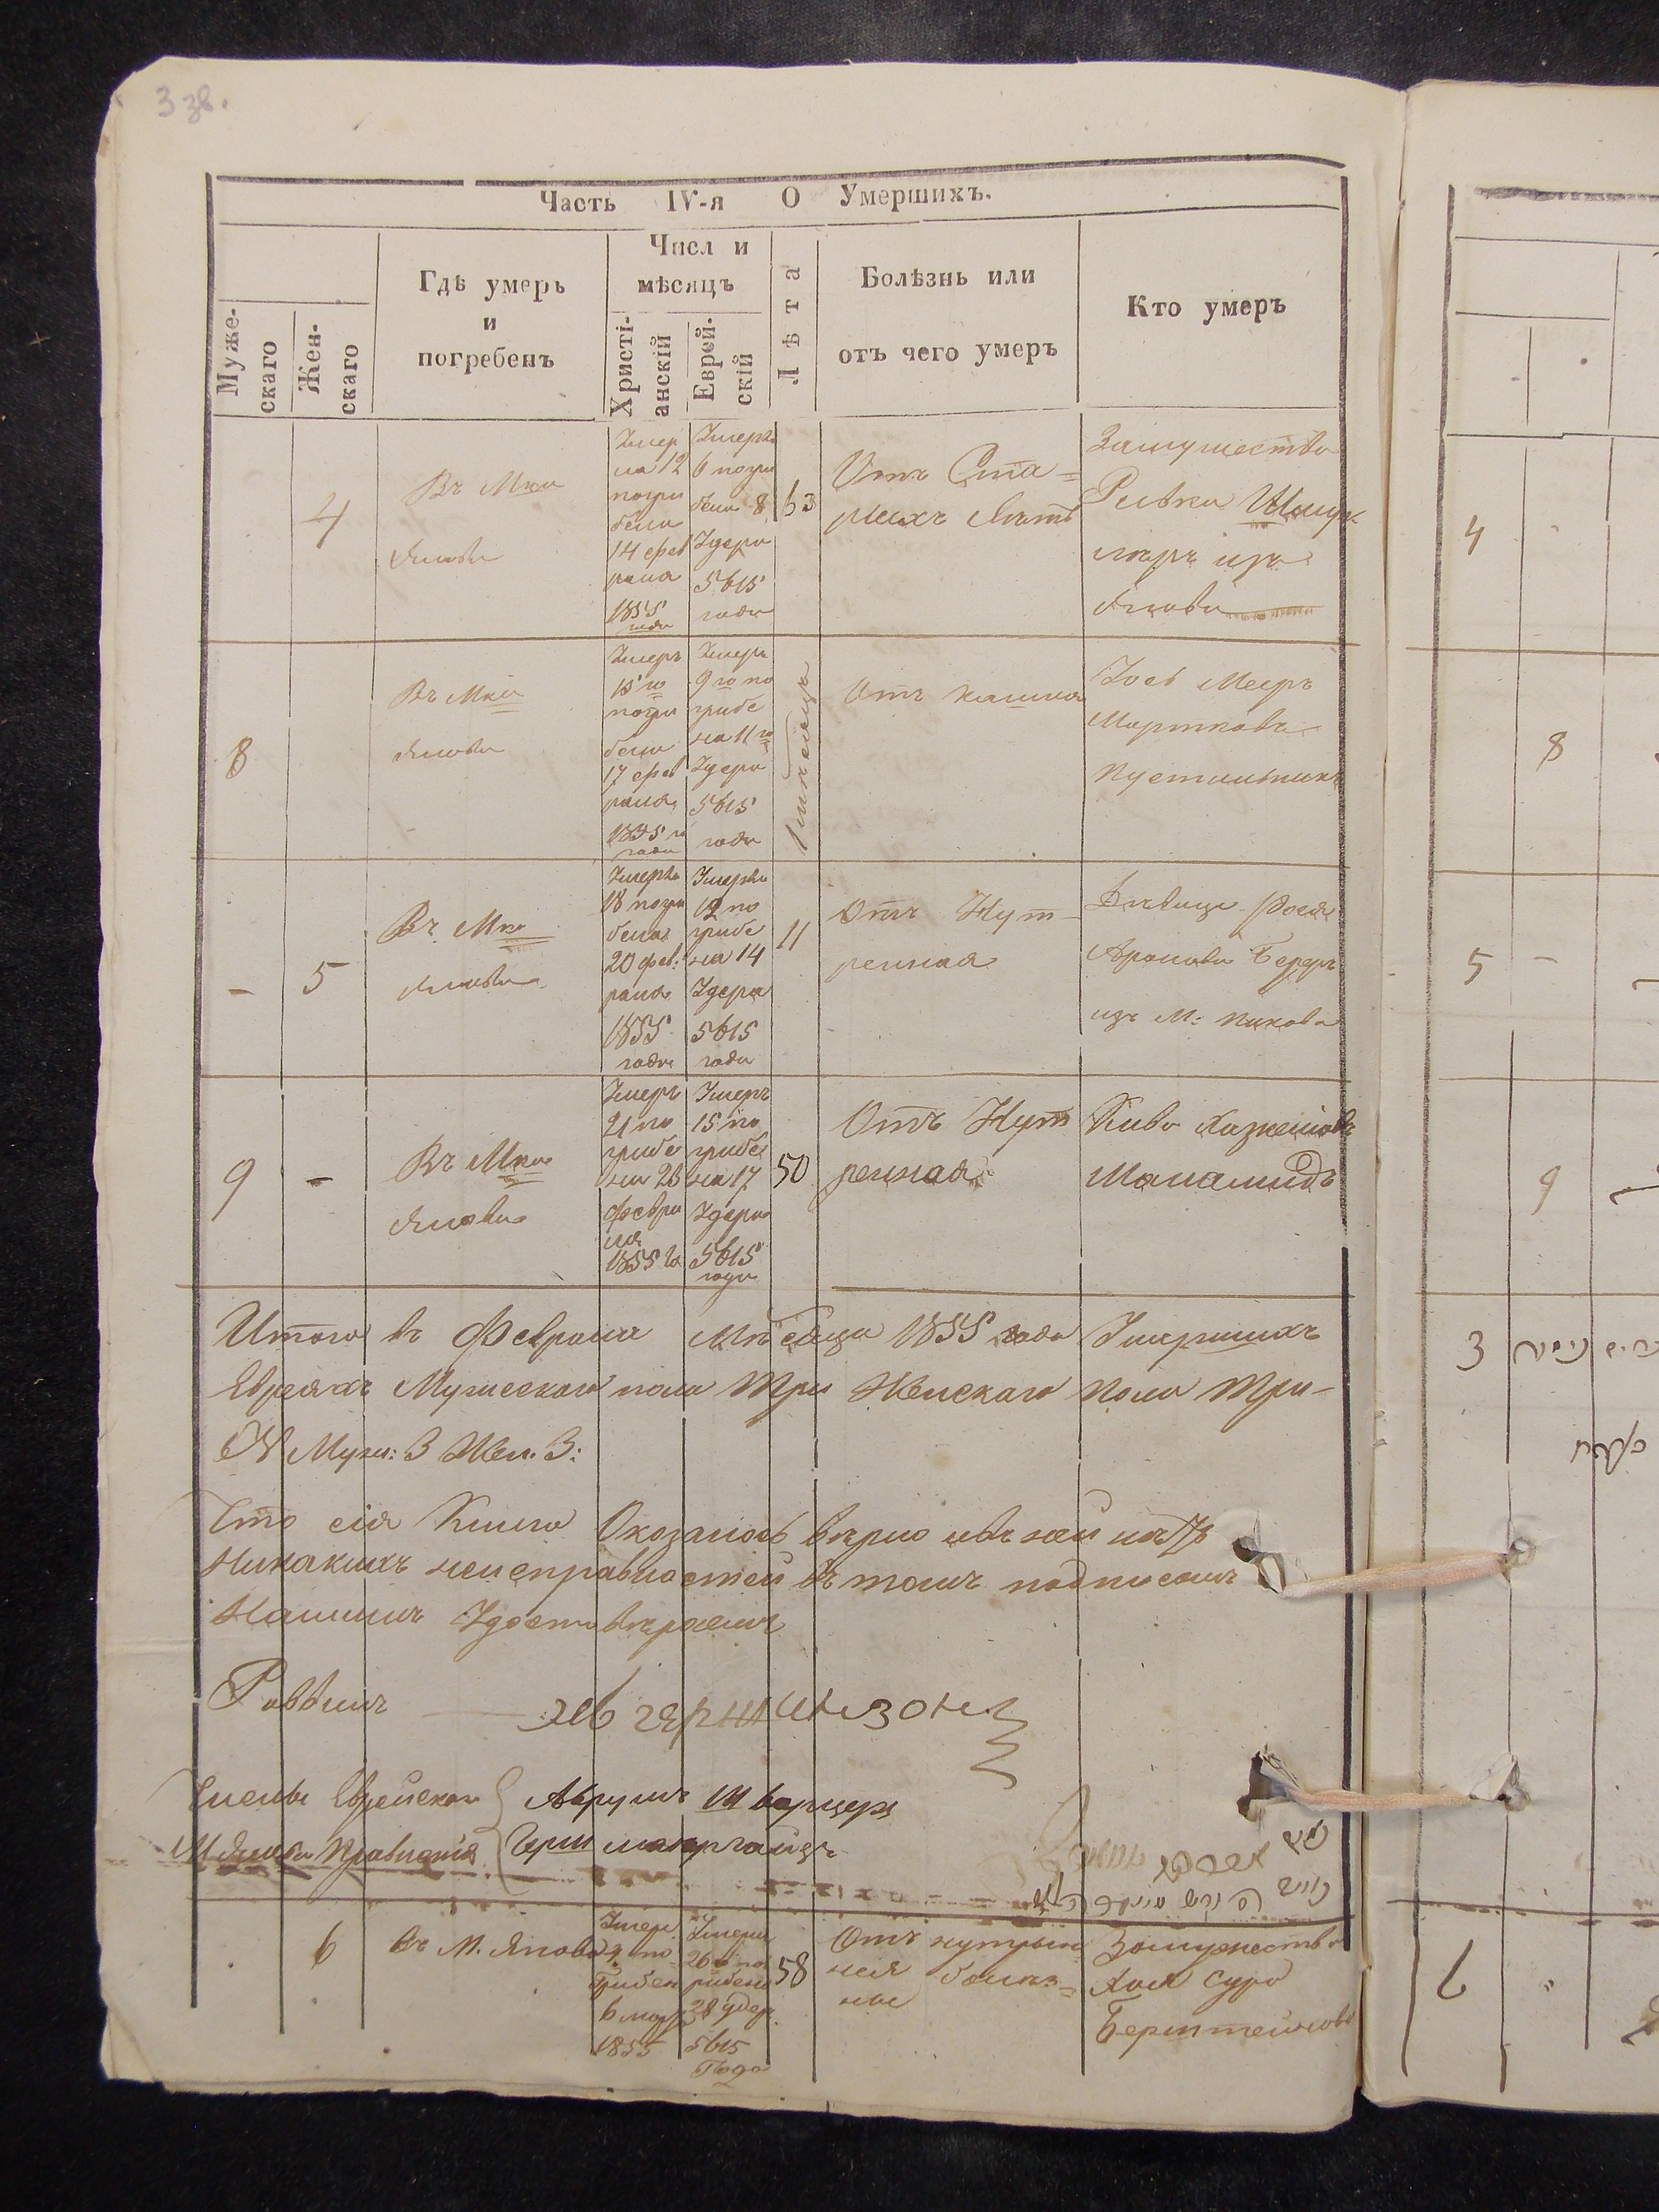 3 зв.
Часть IV-я О Умершихъ.
Муже-
скаго
Жен-
скаго
Гдѣ умеръ
и
погребенъ
Числ и
мѣсяцъ
Христі-
анскій
Еврей-
скій
Лѣта
Болѣзнь или
отъ чего умеръ
Кто умеръ
4
Въ Мко
Янови
Умер
ла 12
погри
бена
14 фев
раля
1855
года
Умерла
6 погри
бена 8
Удера
5615
года
63
Отъ Ста=
рыхъ лѣтъ
Замужества
Ривка
изъ
Янова
8
Въ Мко
Янови
Умеръ
15 го
погри
бенъ
17 фев
раля
1855 го
года
Умеръ
9 го по
грибе
на 11 го
Удера
5615
года
1 мѣсяцъ
Отъ кашля
Йось Мееръ
Мортковъ
Пустильникъ
- 5
Въ Мко
Янови
Умерла
18 погри
бена
20 фев:
раля
1855
года
Умерла
12 по
грибе
на 14
Удера
5615
года
11
Отъ Нут-
ренная
Дѣвица Рося
Аронова Бедеръ
изъ М: Пикова
9 -
Въ Мко
Янови
Умеръ
21 по
грибе
на 23
Февра
ля
1855 го
Умеръ
15 по
грибе
на 17
Удера
5615
года
50
Отъ Нут
ренная
Кива
Маламидъ
Итого въ Февраля Мѣсяца 1855 года Умершихъ
Евреяхъ Мужескаго пола Три Женскаго пола Три-
Муж: 3 Жен. 3:
Что сія Книга Оказалось вѣрно и въ ней нѣтъ
Никакихъ неисправностей въ томъ подписомъ
Нашимъ Удостовѣряемъ
Раввинъ
Члены Еврейскаго
М Янова Правленія
Абрумъ Шварцеръ
Герш
6
въ М. Янова
Умер.
4 по
грибен
6 март
1855
Умерла
26 по
грибена
28 удер.
5615
Года
58
Отъ нутрын
ная болѣз=
ны
Замужества
Хая Сура
Бернштейнова
4
8
5 -
9
3
6